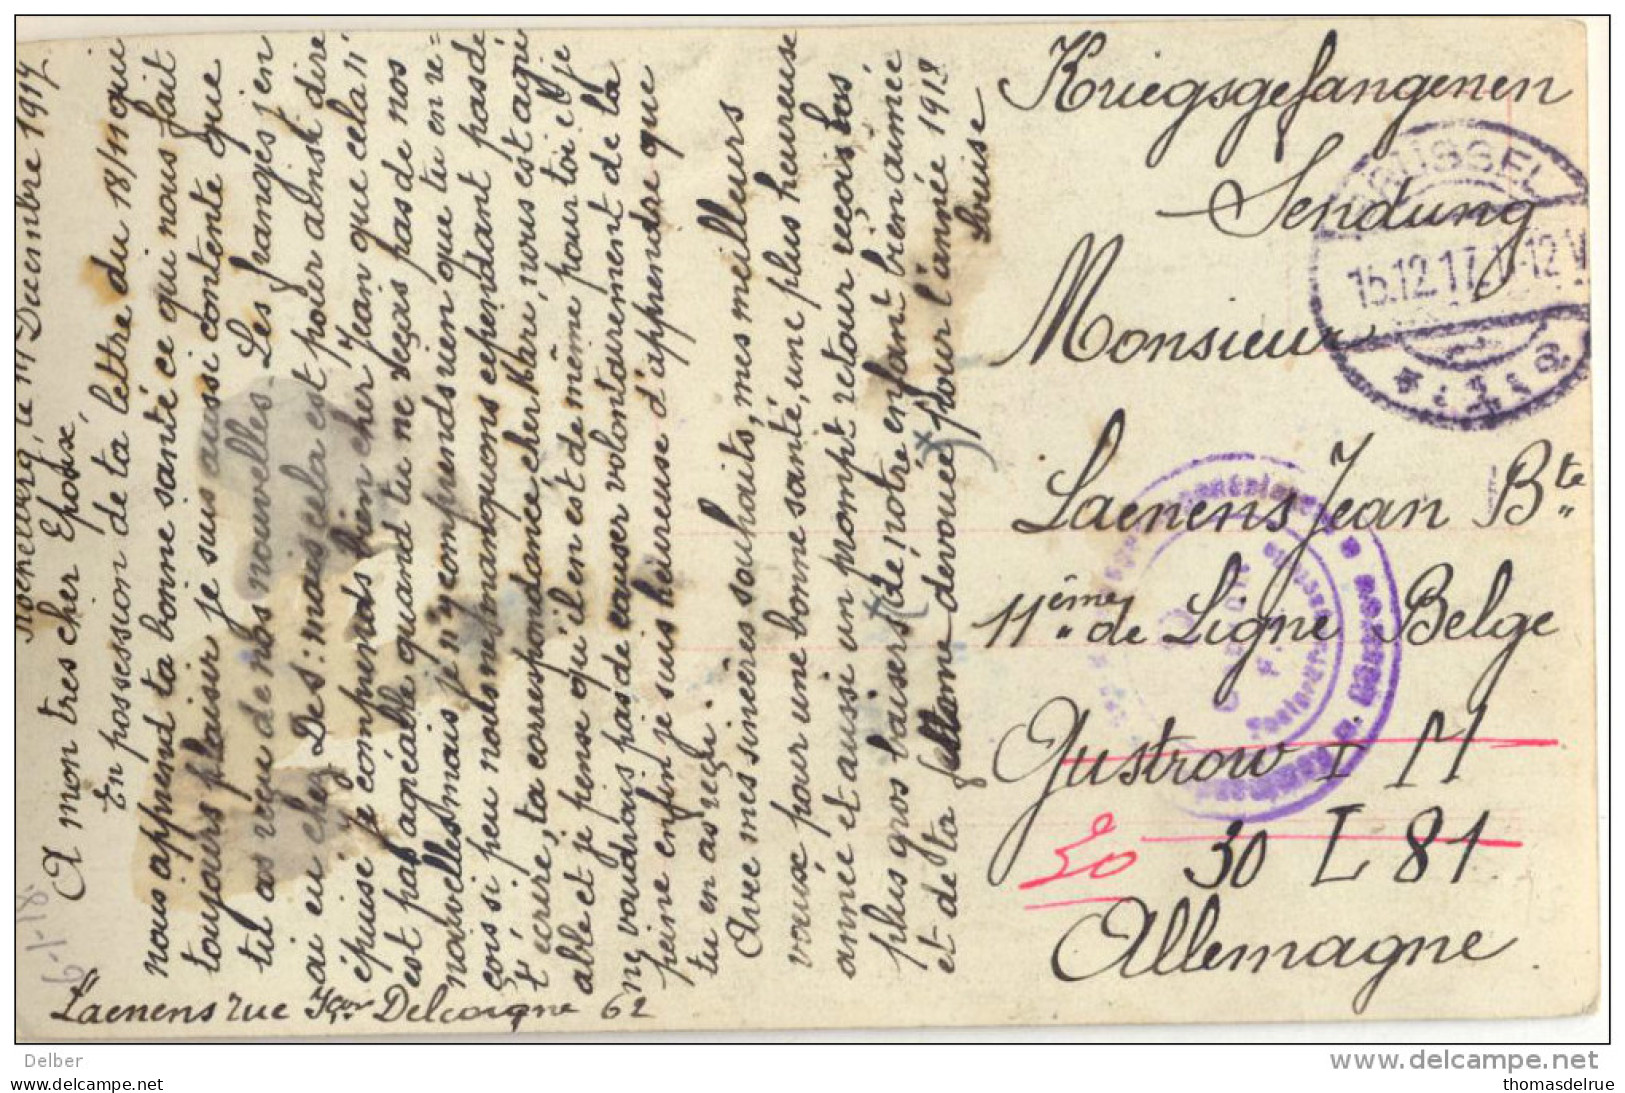 Koekelberg, le 11 Decembre 1917
A mon tres cher Epoux,
En possession de ta lettre du 18/11 qui
nous apprend ta bonne santé ce qui nous fait
toujours plaisir je suis aussi contente que
tu as reçu de nos nouvelles. Les franges j'en
ai eu chez Des: mais cela est pour ainsi dire
épuisé je comprends bien cher Jean que cela n'
est pas agréable quand tu ne reçois pas de nos
nouvelles mais je n'y comprends rien que tu en re=
çois si peu nous ne manquons cependant pas de
t'écrire, ta correspondance cher Mari, nous est agré
able et je pense qu'il en est de même pour toi et je
ne voudrais pas de causer volontairement de la
peine enfin je suis heureuse d'apprendre que
tu en as reçu.
Avec mes sincères souhaits, mes meilleurs
voeux pour une bonne santé, une plus heureuse
année et aussi un prompt retour reçois les
plus gros baisers de notre enfant bien aimée
et de ta femme dévouée pour l'année 1918
Louise
6-1-18
Laenens rue Delcoigne 62
Kriegsgefangenen
Sendung
Monsieur
Laenens Jean Bte
11ème de Ligne Belge
Gustrow I M
30
30 L 81
Allemagne
BRÜSSEL
15.12.17. 11-12 V
Delber
myshop.delcampe.net
delcampe.net
thomasdelrue